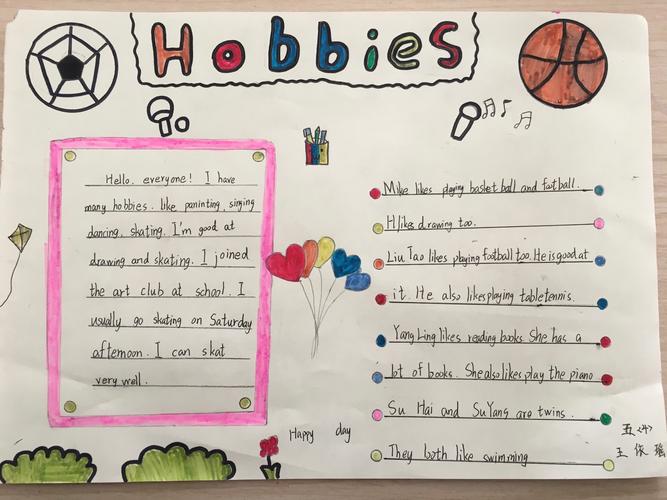 Hobbies
Hello, everyone! I have
many hobbies. like paninting, singing
dancing, skating. I'm good at
drawing and skating. I joined
the art club at school. I
usually go skating on Saturday
afternoon. I can skat
very well.
Mike likes playing basket ball and football.
H likes drawing too.
Liu Tao likes playing football too. He is good at
it. He also likes playing table tennis.
Yang Ling likes reading books. She has a
lot of books. She also likes play the piano
Su Hai and Su Yang are twins.
They both like swimming
Happy day
五〈4〉
王